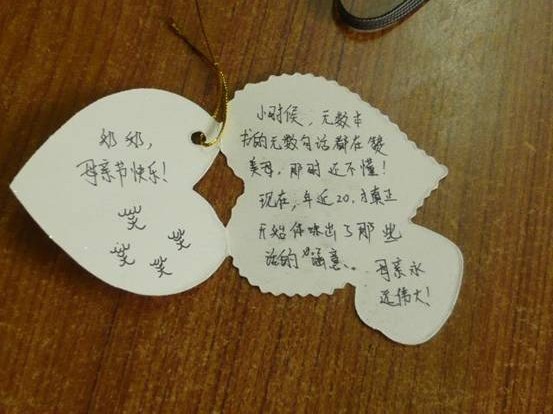 母亲节快乐!
笑
笑
笑
笑
小时候，无数本
书的无数句话都在赞
美母，那时还不懂!
现在，年近20，才真正
开始体味出了那些
话的"涵意。
母亲永
远伟大!